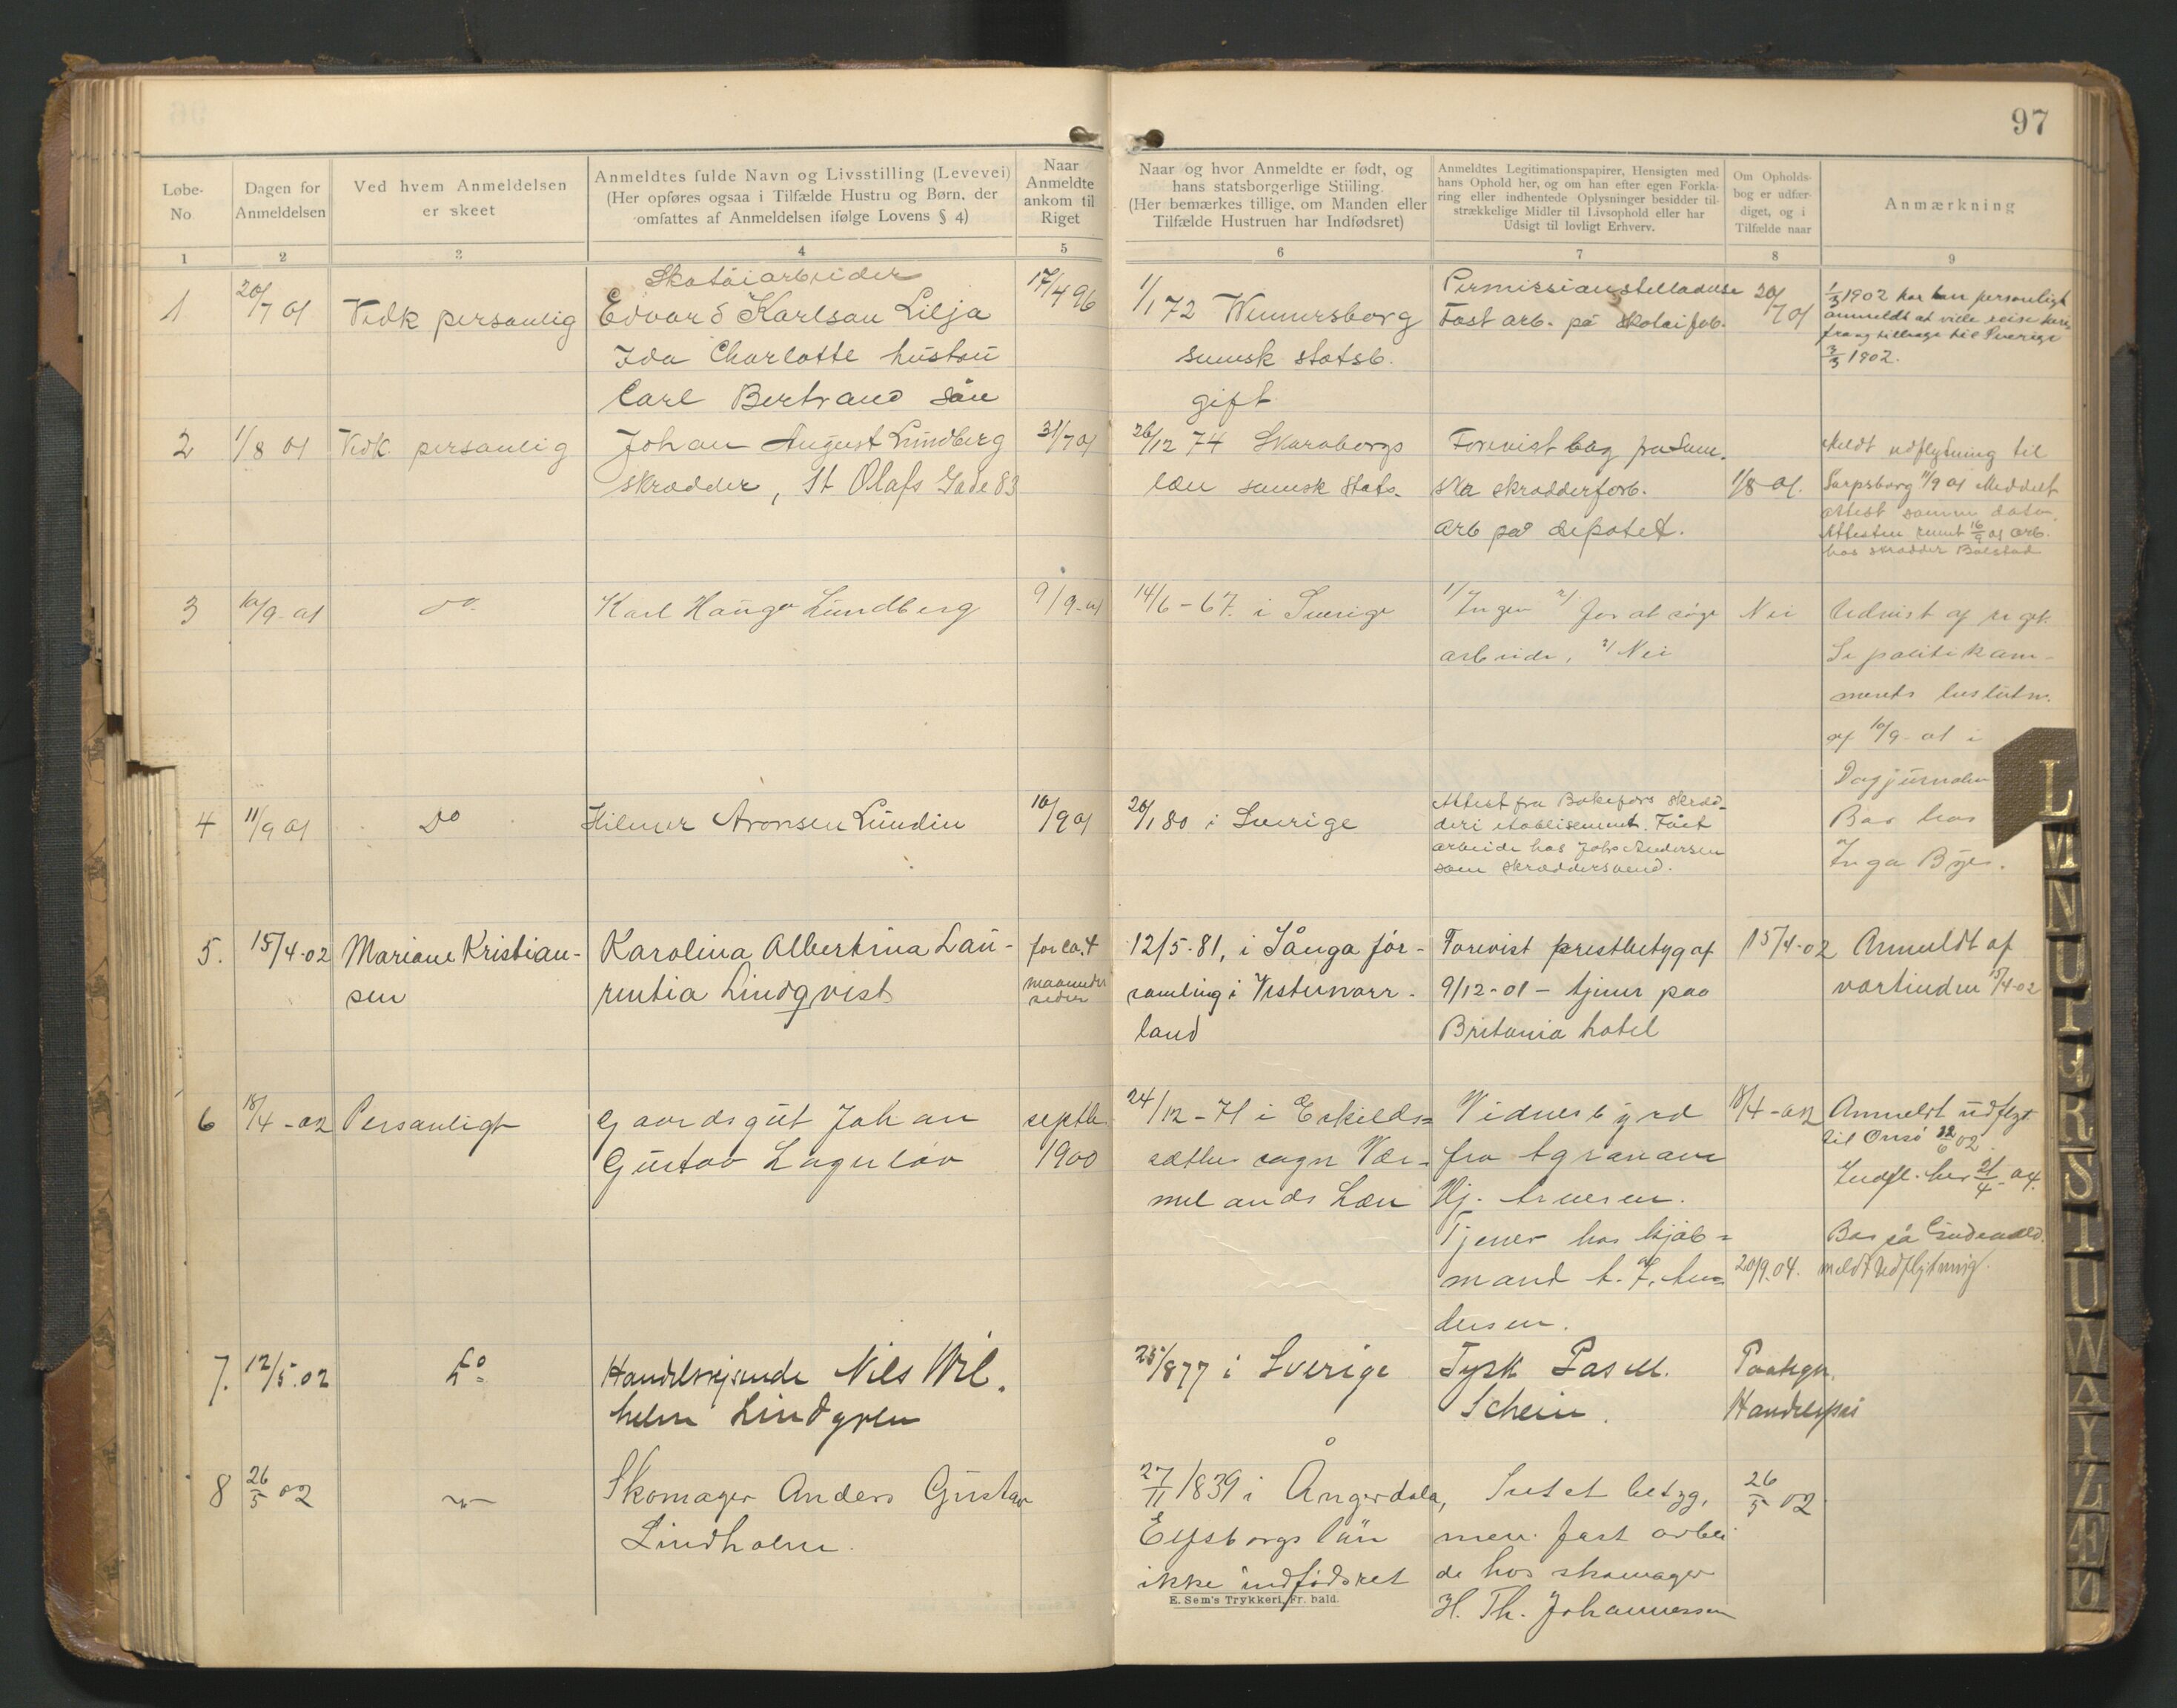 97
Løbe-
No
Dagen for
Anmeldelsen
Ved hvem Anmeldelsen
er skeet
Anmeldtes fulde Navn og Livsstilling (Levevei)
(Her opføres ogsaa i Tilfælde Hustru og Børn, der
omfattes af Anmeldelsen ifølge Lovens § 4)
Naar
Anmeldte
ankom til
Riget
Naar og hvor Anmeldte er født, og
hans statsborgerlige Stilling.
(Her bemærkes tillige, om Manden eller
Tilfælde Hustruen har Indfødsret)
Anmeldtes Legitimationspapirer, Hensigten med
hans Ophold her, og om han efter egen Forkla-
ring eller indhentede Oplysninger besidder til-
strækkelige Midler til Livsophold eller har
Udsigt til lovligt Erhverv.
Om Opholds-
bog er udfær-
diget, og i
Tilfælde naar
Anmærkning
1
2
3
4
5
6
7
8
9
1
20/7 01
Vedk personlig
Skotøiarbeider
Edvard Karlson Lilja
Ida Charlotte hustru
Carl Bertrand søn
17/4 96
1/1 72 Wennersborg
svensk statsb.
gift
Fast arb. på skotøifab.
20/7 01
1/3 1902 har han personligt
anmeldt at ville reise her
fra og tilbage til Sverige
3/3 1902.
2
1/8 01
Vedk. personlig
Johan August Lundberg
skrædder, St Olafs Gade 83
31/7 01
26/12 74 Skaraborgs
læn svensk stats-
Forevist bog fra Sven-
ska skrædderforb.
arb på depotet.
1/8 01.
Meldt udflytning til
Sarpsborg 11/9 01 Meddelt
attest samme dato
Attesten 16/9 01 arb.
hos skrædder Bolstad
3
10/9-01
do.
Karl Hauger Lundberg
9/9-01
14/6-67. i Sverige
1/ Ingen 2/ for at søge
arbeide, 3/ Nei
Nei
Udvist af riget.
Se politikam-
merets beslutn.
af 10/9-01 i
Dagjurnalen
4
11/9 01
Do
Hilmer Aronsen Lundin
10/9 01
20/1 80 i Sverige
Attest fra Bokefors skræd-
deri etablisement. Fået
arbeide hos Johs Andersen
som skræddersvend.
Bor hos
Inga Bye.
5.
15/4-02
Mariane Kristian-
sen
Karolina Albertina Lau-
rentia Lindqvist
for ca. 4
maaneder
siden
12/5-81, i Sånga för-
samling i Vesternorr-
land
Forevist prestbetyg af
9/12-01 - tjener paa
Britania hotel
15/4-02
Anmeldt af
vertinden 15/4-02
6
18/4-02
Personligt
Gaardsgut Johan
Gustav Lagerløv
septbr.
1900
24/12-71 i Eskilds-
sæther sogn Vær-
melands Læn
Vidnesbyrd
fra Agronom
Hj. Arnesen.
Tjener hos kjøb-
mand A. F. An-
dersen.
18/4-02
20/9.04.
Anmeldt udflyt
til Onsø 02.
Indfl. her 21/4-04.
Bor på
meldt Udflytning.
7.
12/5.02
Do
Handelsrejsende Nils Wil-
helm Lindgren
25/8 77 i Sverige
Tysk Pas M.
Schein.
Paategn.
Handelspas
8
26/5 02
-"-
Skomager Anders Gustav
Lindholm.
27/11 1839 i Ångerdala,
Elfsborgs län
ikke indfødsret
Intet betyg,
men fast arbei
de hos skomager
H. Th. Johannessen
26/5 02
E. Sem's Trykkeri, Fr. hald.
L
M
N
O
P
Q
R
S
T
U
W
A
Y
Z
Æ
Ø